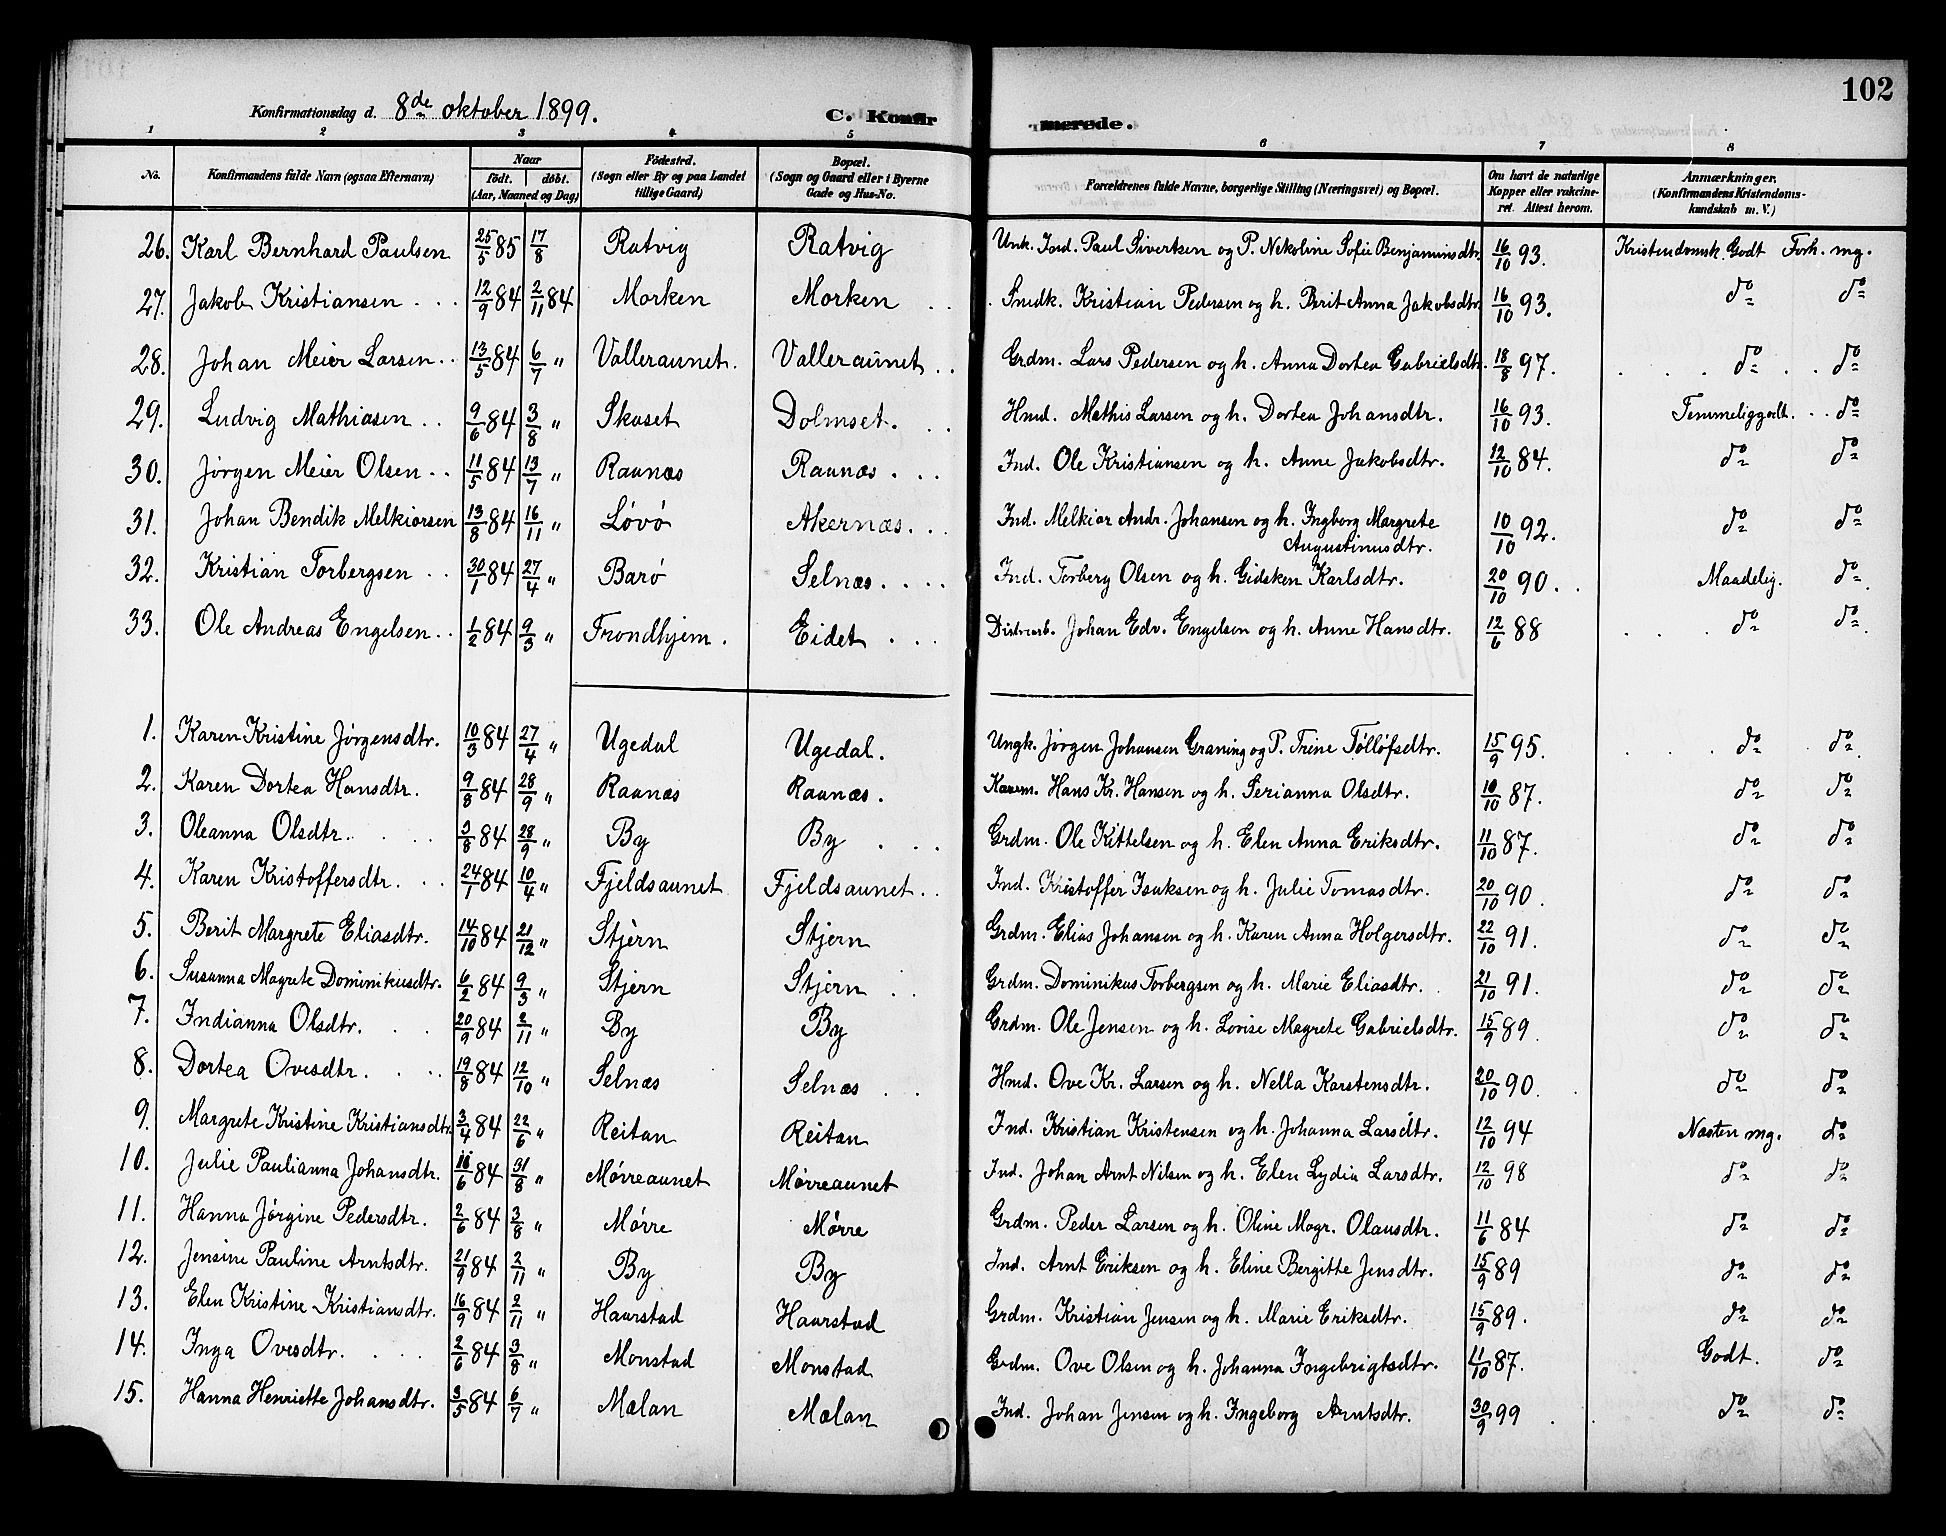 102
Konfirmationsdag d. 8de oktober 1899. C. Konfirmerede.
1 2 3 4 5 6 7 8
No. Konfirmandens fulde Navn (ogsaa Efternavn) Naar født. døbt. (Aar, Maaned og Dag) Fødested. (Sogn eller By og paa Landet tillige Gaard) Bopæl. (Sogn og Gaard eller i Byerne Gade og Hus-No. Forældrenes fulde Navne, borgerlige Stilling (Næringsvei) og Bopæl. Om havt de naturlige Kopper eller vakcineret. Attest herom. Anmærkninger. (Konfirmandens Kristendomskundskab m. V.)
26. Karl Bernhard Paulsen 25/5 85 17/8 Ratvig Ratvig Unk. Ind. Paul Sivertsen og P. Nekoline Sofie Benjaminsdtr. 16/10 93. Kristendomsk. Godt Forh. mg.
27. Jakob Kristiansen 12/9 84 2/11 84 Morken Morken Smdk. Kristian Pedersen og h. Berit Anna Jakobsdtr. 16/10 93. do do
28. Johan Meier Larsen 13/5 84 6/7 " Valleraunet. Valleraunet Grdm. Lars Pedersen og h. Anna Dortea Gabrielsdtr. 18/8 97. do do
29. Ludvig Mathiasen 9/6 84 3/8 " Skaset Dolmset. Hmd. Mathis Larsen og h. Dortea Johansdtr. 16/10 93. Temmeliggodt. do
30. Jørgen Meier Olsen 11/5 84 13/7 " Raanæs Raanæs. Ind. Ole Kristiansen og h. Anne Jakobsdtr. 12/10 84. do do
31. Johan Bendik Melkiorsen 13/8 84 16/11 " Løvø Akernæs. Ind. Melkior Andr. Johansen og h. Ingborg Margrete Augustinusdtr. 10/10 92. do do
32. Kristian Torbergsen 30/1 84 27/4 " Barø Selnæs. Ind. Torberg Olsen og h. Gidsken Karlsdtr. 20/10 90. Maadelig. do
33. Ole Andreas Engelsen 1/2 84 9/3 " Trondhjem. Eidet Distriarb. Johan Edv. Engelsen og h. Anne Hansdtr. 12/6 88 do do
1. Karen Kristine Jørgensdtr. 10/3 84 27/4 " Ugedal Ugedal. Ungk. Jørgen Johansen Graning og P. Trine Tølløfsdtr. 15/9 95. do do
2. Karen Dortea Hansdtr. 9/8 84 28/9 " Raanæs Raanæs. Hans Kr. Hansen og h. Serianna Olsdtr. 10/10 87. do do
3. Oleanna Olsdtr. 3/8 84 28/9 " By By Grdm. Ole Kittelsen og h. Elen Anna Eriksdtr. 11/10 87. do do
4. Karen Kristoffersdtr. 24/1 84 10/4 " Fjeldsaunet Fjeldsaunet Ind. Kristoffer Isaksen og h. Julie Tomasdtr. 20/10 90. do do
5. Berit Margrete Eliasdtr. 14/10 84 21/12 " Stjern Stjern Grdm. Elias Johansen og h. Karen Anna Holgersdtr. 22/10 91. do do
6. Susanna Magrete Dominikusdtr. 6/2 84 9/3 " Stjern Stjern Grdm. Dominikus Torbergsen og h. Marie Eliasdtr. 21/10 91. do do
7. Indianna Olsdtr. 20/9 84 2/11 " By By Grdm. Ole Jensen og h. Lovise Magrete Gabrielsdtr. 15/9 89. do do
8. Dortea Ovesdtr. 19/8 84 12/10 " Selnæs Selnæs Hmd. Ove Kr. Larsen og h. Nella Karstensdtr. 20/10 90. do do
9. Margrete Kristine Kristiansdtr. 3/4 84 22/6 " Reitan Reitan Ind. Kristian Kristensen og h. Johanna Larsdtr. 12/10 94 Næsten mg. do
10. Julie Paulianna Johansdtr. 16/6 84 31/8 " Mørreaunet Mørreaunet Ind. Johan Arnt Nilsen og h. Elen Lydia Larsdtr. 12/10 98 do do
11. Hanna Jørgine Pedersdtr. 2/6 84 3/8 " Mørre Mørre Grdm. Peder Larsen og h. Oline Magr. Olausdtr. 11/6 84 do do
12. Jensine Pauline Arntsdtr. 21/9 84 2/11 " By By Ind. Arnt Eriksen og h. Eline Bergitte Jensdtr. 15/9 89 do do
13. Elen Kristine Kristiansdtr. 16/9 84 2/11 " Haarstad Haarstad Grdm. Kristian Jensen og h. Marie Eriksdtr. 15/9 89. do do
14. Inga Ovesdtr. 2/6 84 3/8 " Monstad Monstad Grdm. Ove Olsen og h. Johanna Ingebrigtsdtr. 11/10 87. Godt. do
15. Hanna Henriette Johansdtr. 3/5 84 6/7 " Mælan Mælan Ind. Johan Jensen og h. Ingeborg Arntsdtr. 30/9 99 do do